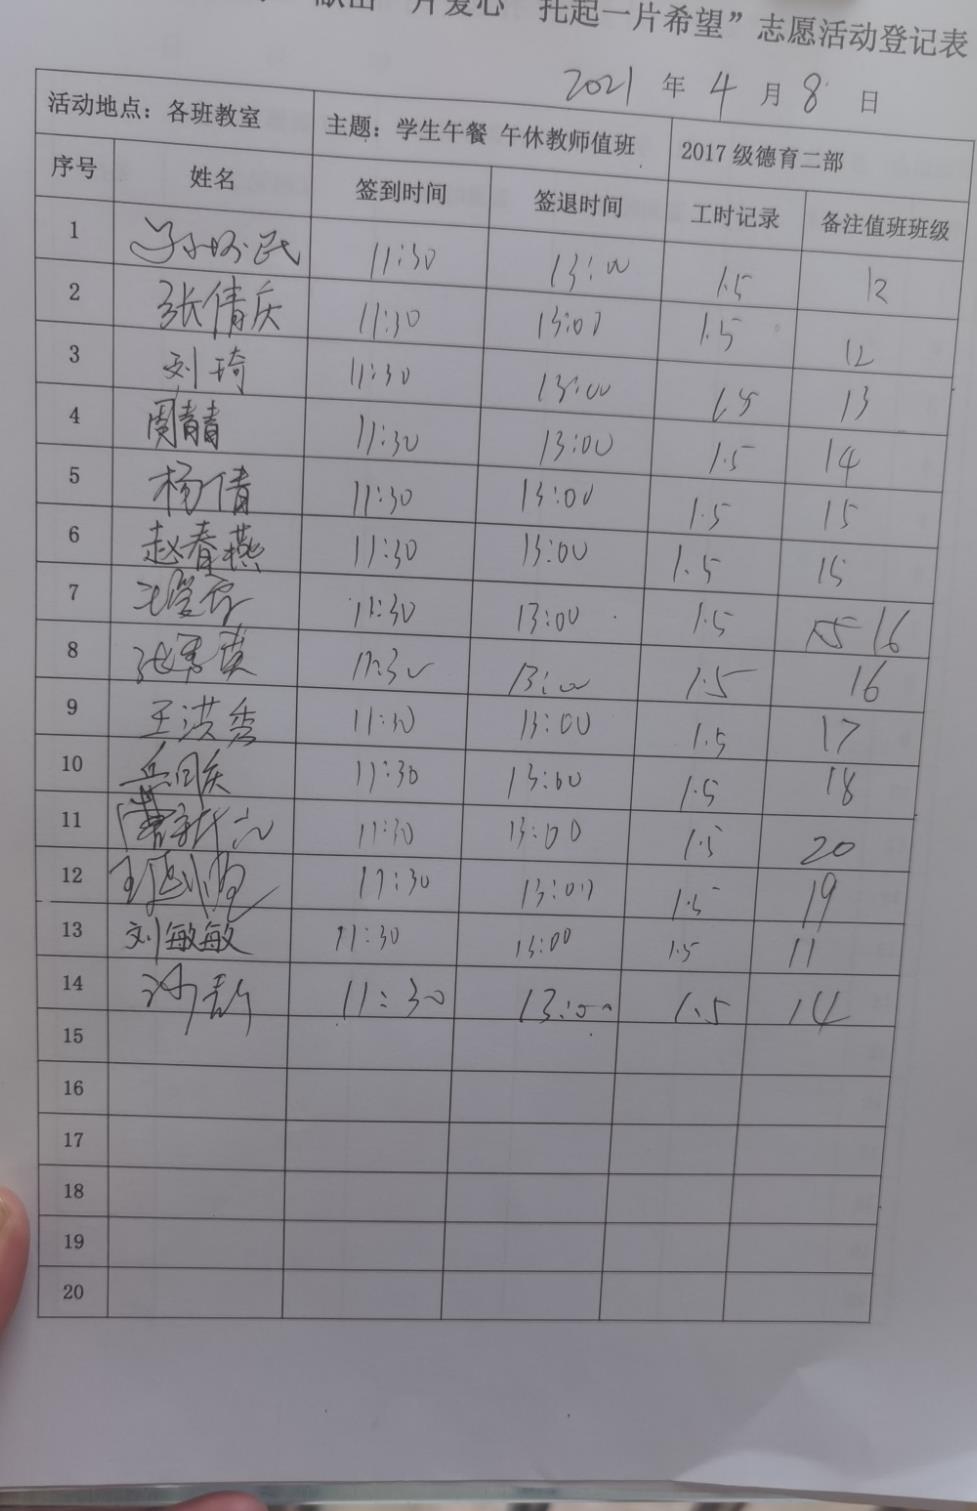 献出一片爱心 托起一片希望”志愿活动登记表
2021 年 4 月 8 日
活动地点：各班教室 主题：学生午餐 午休教师值班 2017 级德育二部
序号 姓名 签到时间 签退时间 工时记录 备注值班班级
1 11:30 13:00 1.5 12
2 张倩庆 11:30 13:00 1.5 12
3 刘琦 11:30 13:00 1.5 13
4 周青青 11:30 13:00 1.5 14
5 杨倩 11:30 13:00 1.5 15
6 赵春燕 11:30 13:00 1.5 15
7 11:30 13:00 1.5 16
8 11:30 13:00 1.5 16
9 王洪秀 11:30 13:00 1.5 17
10 11:30 13:00 1.5 18
11 11:30 13:00 1.5 20
12 11:30 13:00 1.5 19
13 刘敏敏 11:30 13:00 1.5 11
14 11:30 13:00 1.5 14
15
16
17
18
19
20